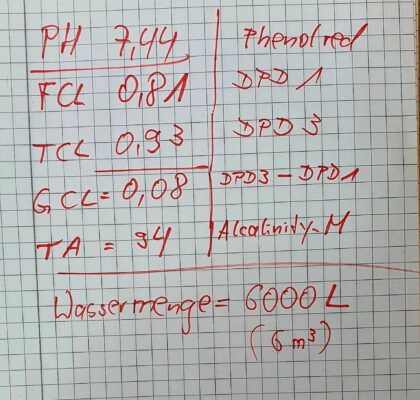 PH 7,44 Phenolred
FCL 0,81 DPD 1
TCL 0,93 DPD 3
GCL = 0,08 DPD3 - DPD1
TA = 94 Alcalinidy-M
Wassermenge = 6000 L
(6 m³)